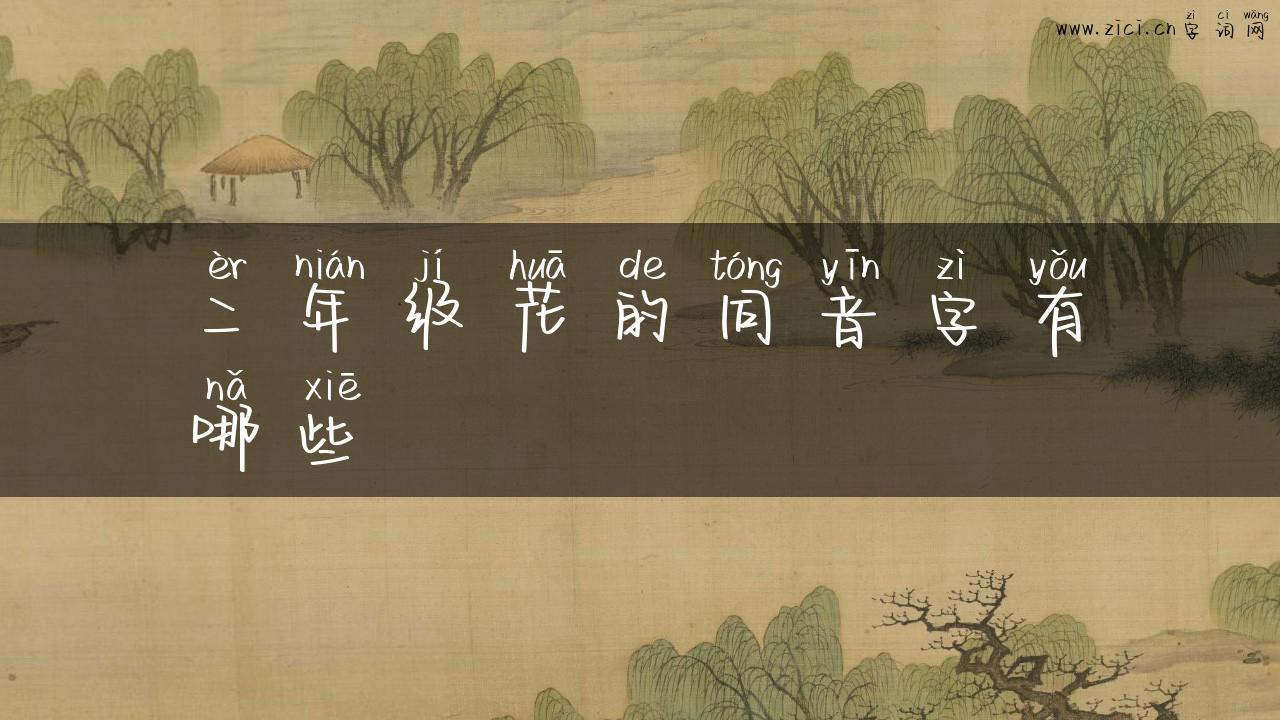 zì cí wǎng
www.zici.cn 字词网
èr nián jí huā de tóng yīn zì yǒu
二年级花的同音字有
nǎ xiē
哪些